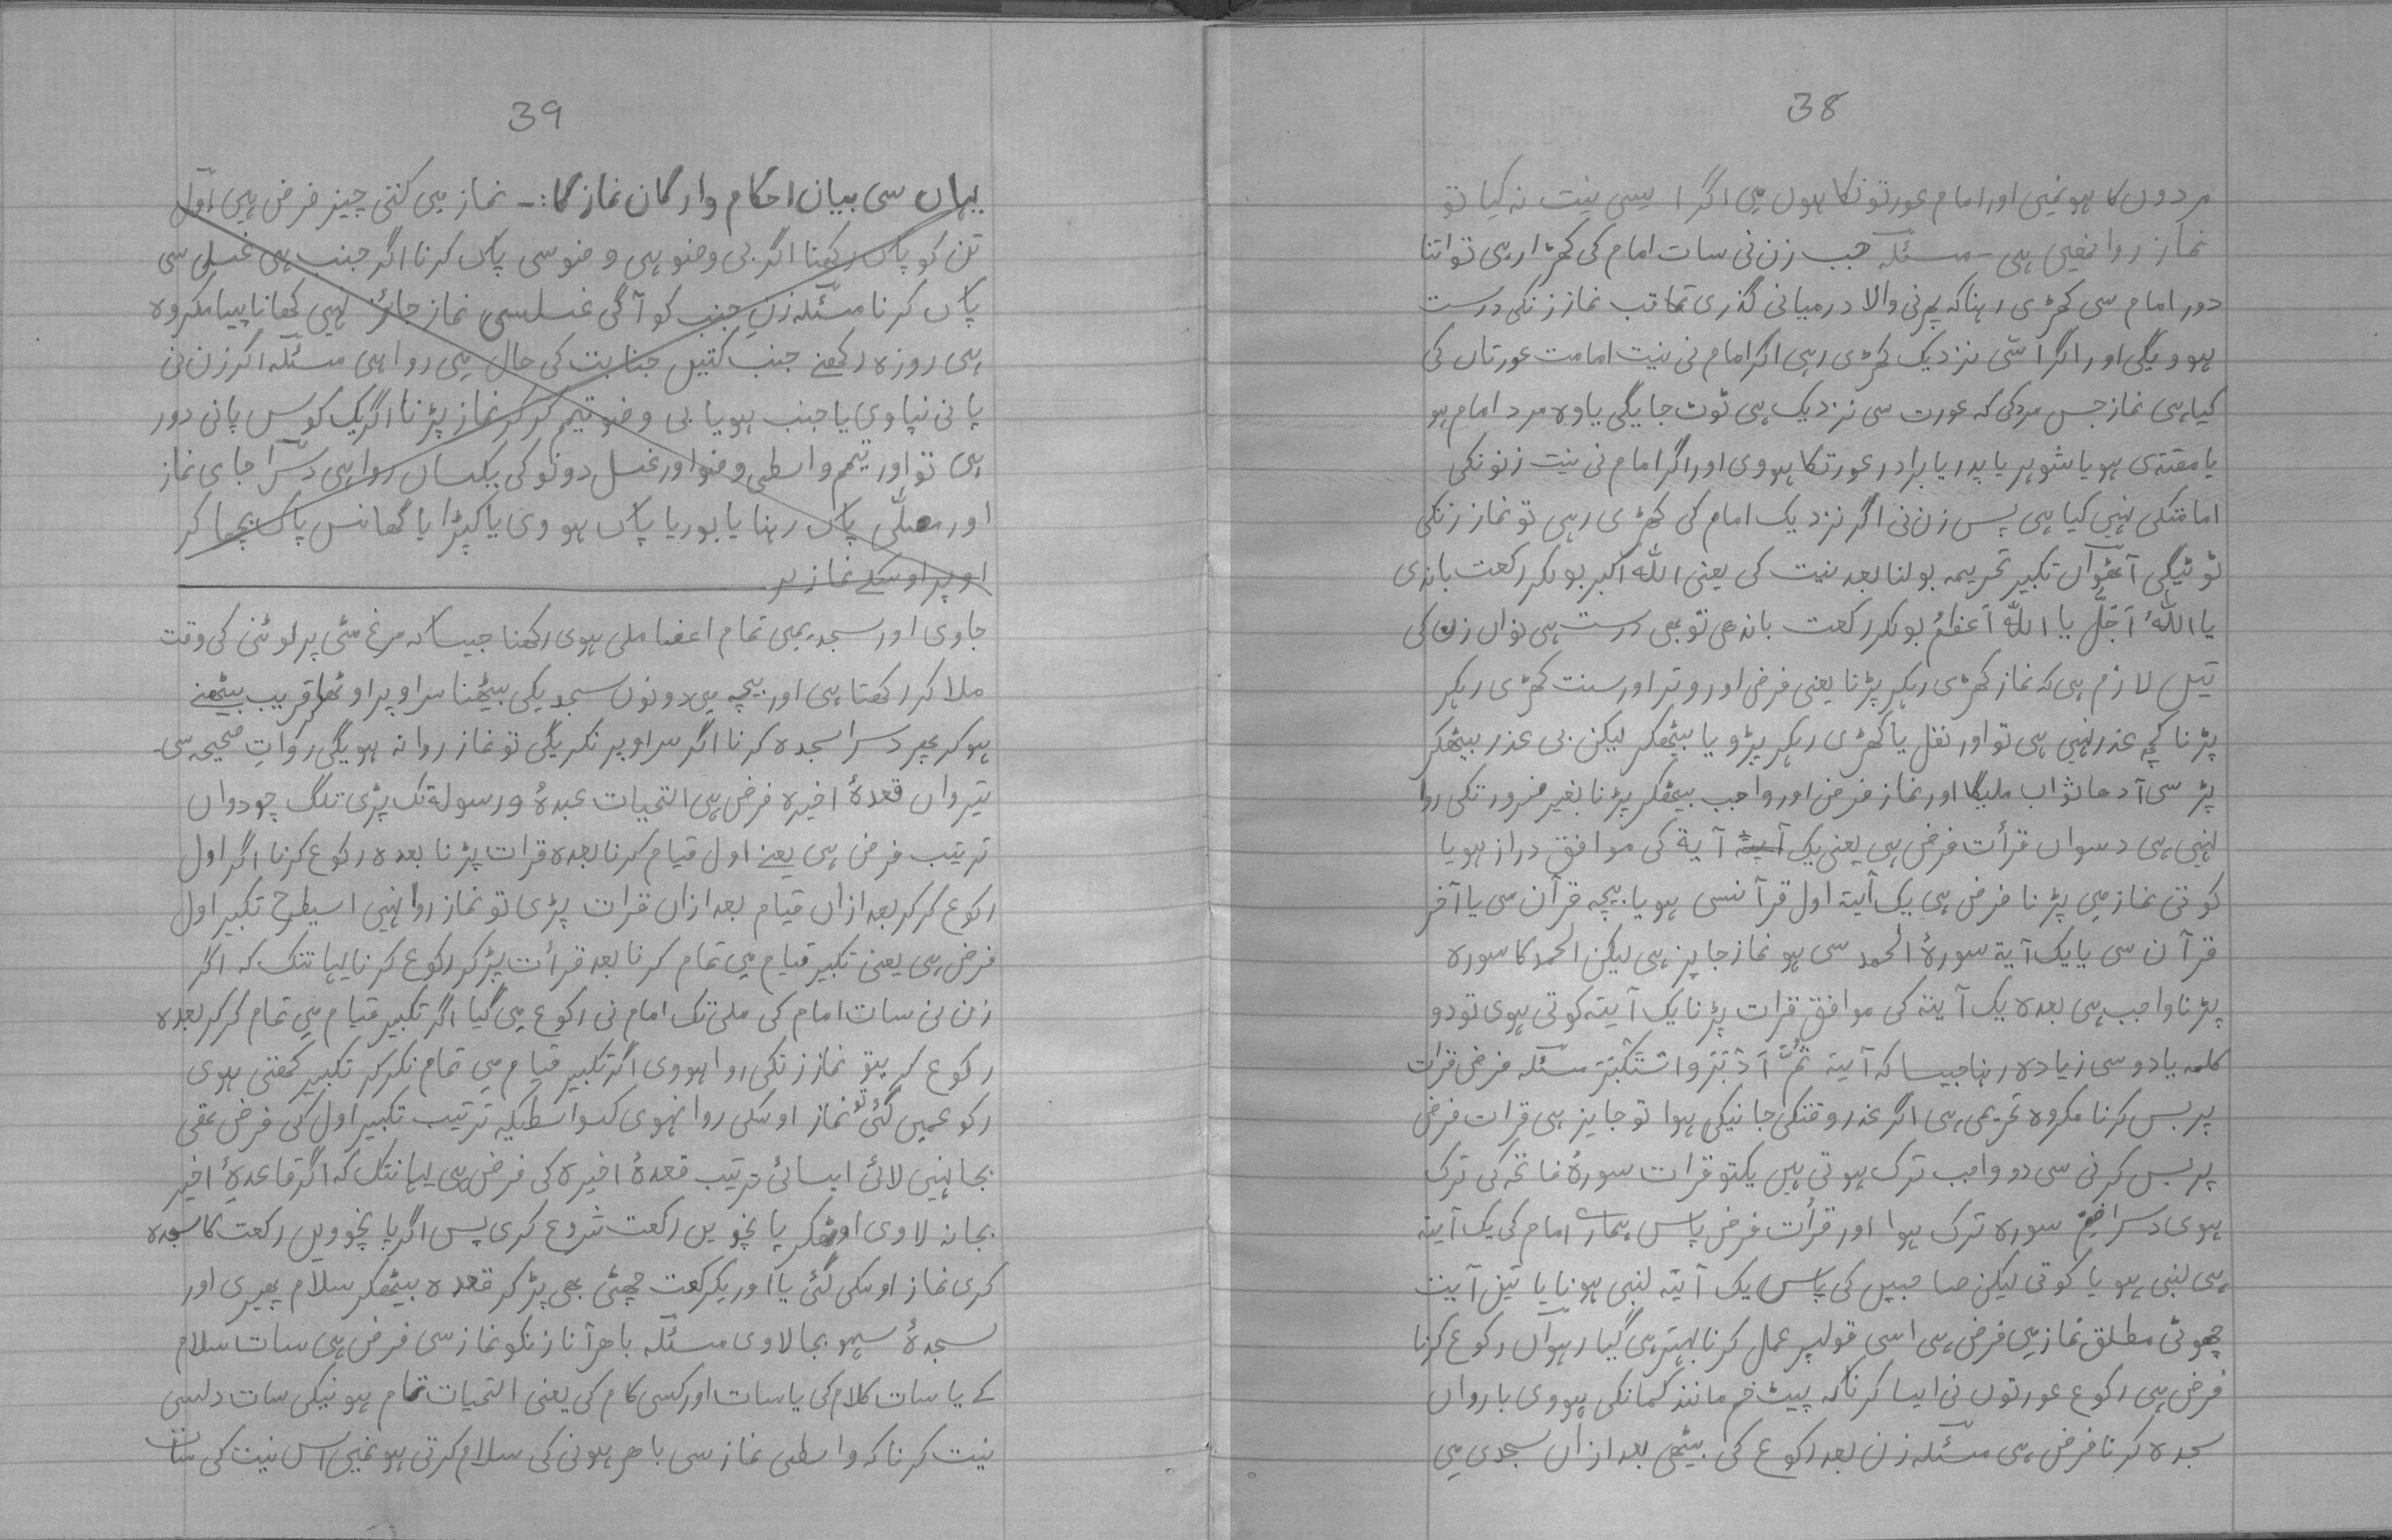 38
مردوں کا ہو نمیں اور امام عورتونکا ہوں میں اگر ایسی نیت نہ کیا تو
نماز روا نھیں ہی۔ مسئلہ جب زن نی سات امام کی کھڑا رہی تو اتنا
دور امام سی کھڑی رہنا کہ پھرنی والا درمیانی گذری تما تب نماز زنکی درست
ہوویگی اور اگر اسّی نزدیک کھڑی رہی اگر امام نی نیت امامت عورتاں کی
کیا ہی نماز جس مرد کی کہ عورت سی نزدیک ہی ٹوٹ جایگی یا وہ مرد امام ہو
یا مقتدی ہو یا شوہر یا پدر یا برادر عورتکا ہووی اور اگر امام نی نیت زنونکی
امامتکی نہیں کیا ہی پس زن نی اگر نزدیک امام کی کھڑی رہی تو نماز زنکی
ٹوٹیگی آٹھواں تکبیر تحریمہ بولنا بعد نیت کی یعنی اللہ اکبر بولکر رکعت باندی
یا اللہُ اَجَلُّ یا اللہُ اَعْظَمُ بولکر رکعت باندھی تو بھی درست ہی نواں زن کی
تیں لازم ہی کہ نماز کھڑی رہکر پڑنا یعنی فرض اور وتر اور سنت کھڑی رہکر
پڑنا کچہ عذر نہیں ہی تو اور نفل یا کھڑی رہکر پڑو یا بیٹھکر لیکن بی عذر بیٹھکر
پڑسی آدھا ثواب ملیگا اور نماز فرض اور واجب بیٹھکر پڑنا بغیر ضرورتکی روا
نہیں ہی دسواں قرأت فرض ہی یعنی یک آیتہ آیة کی موافق دراز ہو یا
کوتی نماز میں پڑنا فرض ہی یک آیتہ اول قرآنسی ہو یا بیچہ قرآن سی یا آخر
قرآن سی یا یک آیة سورۂ الحمد سی ہو نماز جایز ہی لیکن الحمد کا سورہ
پڑنا واجب ہی بعدہ یک آیتہ کی موافق قرات پڑنا یک آیتہ کوتی ہوی تو دو
کلمہ یا دو سی زیادہ رہنا جیسا کہ آیتہ ثُمَّ اَدْبَرَ وَاسْتَکْبَرَ مسئلہ فرض قرات
پر بس کرنا مکروہ تحریمی ہی اگر عذر وقتکی جانیکی ہوا تو جایز ہی قرات فرض
پر بس کرنی سی دو واجب ترک ہوتی ہیں یکتو قرات سورۂ فاتحہ کی ترک
ہوی دسرا ضم سورہ ترک ہوا اور قرأت فرض پاس ہمارے امام کی یک آیتہ
ہی لنبی ہو یا کوتی لیکن صاحبین کی پاس یک آیتہ لنبی ہونا یا تین آیت
چھوٹی مطلق نماز میں فرض ہی اسی قولپر عمل کرنا بہتر ہی گیارہواں رکوع کرنا
فرض ہی رکوع عورتوں نی ایسا کرنا کہ پیٹ خم مانند کمانکی ہووی بارواں
سجدہ کرنا فرض ہی مسئلہ زن بعد رکوع کی بیٹھی بعد ازاں سجدی میں
39
یہاں سی بیان احکام وارکان نماز کا:۔ نماز میں کتنی چیز فرض ہیں اوّل
تن کو پاک رکھنا اگر بی وضو ہی وضو سی پاک کرنا اگر جنب ہی غسل سی
پاک کرنا مسئلہ زنِ جنب کو آگی غسلسی نماز جائز نہیں کھانا پینا مکروہ
ہی روزہ رکھنے جنب کتیں جنابت کی حال میں روا ہی مسئلہ اگر زن نی
پانی نپاوی یا جنب ہو یا بی وضو تیمم کرکر نماز پڑنا اگر یک کوس پانی دور
ہی تو اور تیمم واسطی وضو اور غسل دونو کی یکساں روا ہی دسرا جای نماز
اور مصلّی پاک رہنا یا بوریا پاک ہووی یا کپڑا یا گھانس پاک بچھا کر
اوپر اوسکے نماز پر
جاوی اور سجدیمیں تمام اعضا ملی ہوی رکھنا جیسا کہ مرغ مٹی پر لوٹنی کی وقت
ملا کر رکھتا ہی اور بیچہ میں دونوں سجدیکی بیٹھنا سر اوپر اوٹھا کر قریب بیٹھنے
ہو کر پھر دسرا سجدہ کرنا اگر سر اوپر نکریگی تو نماز روا نہ ہویگی روات صحیحہ سی۔
تیرواں قعدۂ اخیرہ فرض ہی التحیات عبدہٗ ورسولهٗ تک پڑی تلگ چودواں
ترتیب فرض ہی یعنے اول قیام کرنا بعدہ قرات پڑنا بعدہ رکوع کرنا اگر اول
رکوع کرکر بعد ازاں قیام بعد ازاں قرات پڑی تو نماز روا نہیں اسیطرح تکبیر اول
فرض ہی یعنی تکبیر قیام میں تمام کرنا بعد قرأت پڑ کر رکوع کرنا یہانتک کہ اگر
زن نی سات امام کی ملی تک امام نی رکوع میں گیا اگر تکبیر قیام میں تمام کرکر بعدہ
رکوع کریتو نماز زنکی روا ہووی اگر تکبیر قیام میں تمام نکرکر تکبیر کہتی ہوی
رکوعمیں گئی تو نماز اوسکی روا نہوی کسواسطیکہ ترتیب تکبیر اول کی فرض تھی
بجا نہیں لائی ایسائی ترتیب قعدۂ اخیرہ کی فرض ہی یہانتک کہ اگر قاعدۂ اخیر
بجا نہ لاوی اوٹھکر پانچویں رکعت شروع کری پس اگر پانچوویں رکعت کا سجدہ
کری نماز اوسکی گئی یا اور یکرکعت چھٹی بھی پڑ کر قعدہ بیٹھکر سلام پھیری اور
سجدۂ سہو بجا لاوی مسئلہ باھر آنا زنکو نماز سی فرض ہی سات سلام
کے یا سات کلام کی یا سات اور کسی کام کی یعنی التحیات تمام ہونیکی سات دلسی
نیت کرنا کہ واسطی نماز سی باھر ہونی کی سلام کرتی ہو نمیں اس نیت کی سات